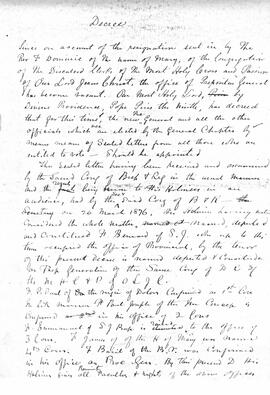 Decree
Since on account of the resignation sent in by The
Rev. F. Dominic of the name of Mary, of the Congregation
of The Discalced Clerks of The Most Holy Cross and Passion
of Our Lord Jesus Christ, the office of Prepositus General
has become vacant. Our Most Holy Lord, by
Divine Providence, Pope Pius the Ninth, has decreed
that for this time, the new General and all the other
officials which are elected by the General Chapter by
means of Sealed letters from all those who are
entitled to vote - Should be appointed
The Sealed letters having been received and examined
by the Sacred Cong of Bish & Reg in the usual manner
and the being to His Holiness in an
audience, had by the Sacred Cong of B & R
on 20 March 1876, His Holiness having
considered the whole matter, named, deputed
and Constituted F. Bernard of S. J. who up to this
time occupied the office of Provincial, by the tenor
of this present decree is named deputed & Constitute
the Prep General of the Same Cong of D C of
the M H C & P of O L J C.
F. Paul of the Virgin of Dolors Confirmed as 1st Con
In like manner F. Paul Joseph of the Imm Concep is
Confirmed in his office of 2 Cons
F. Emmanuel of S J to the office of
3 Cons. F. James of the H of Mary was named
4th Cons. F. Basil of the B.V. was Confirmed
in his office as Proc Gen. By this present D His
Holiness gives all Faculties & rights of the above offices